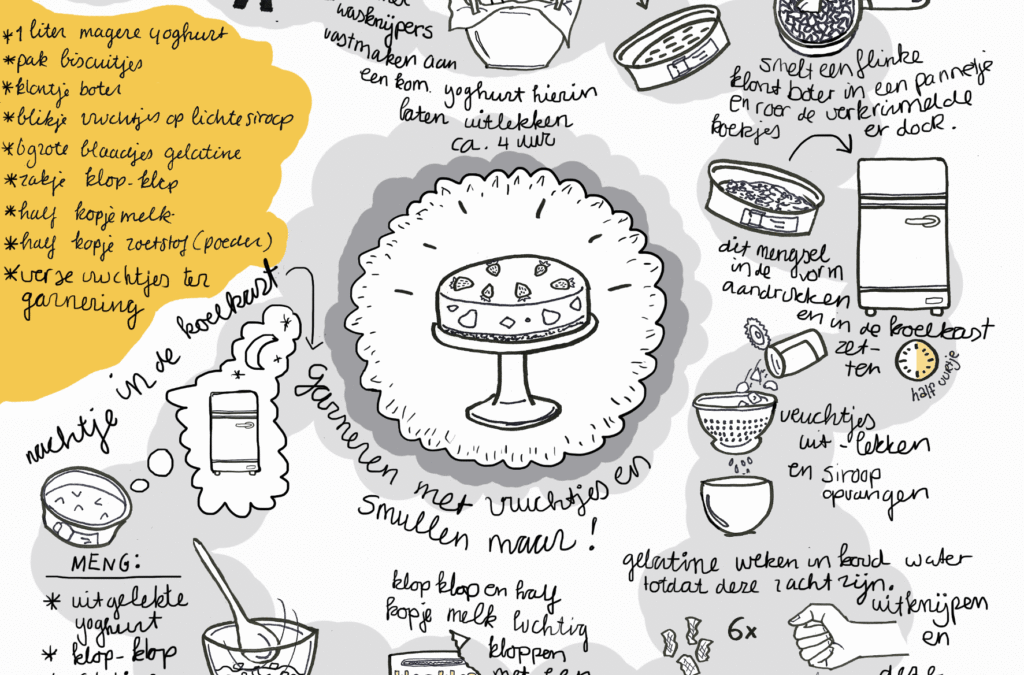 *1 liter magere yoghurt
*pak biscuitjes
*klontje boter
*blikje vruchtjes op lichte siroop
*6 grote blaadjes gelatine
*zakje klop-klop
*half kopje melk
*half kopje zoetstof (poeder)
*verse vruchtjes ter
garnering
wasknijpers
vastmaken aan
een kom. yoghurt hierin
laten uitlekken
ca. 4 uur
smelt een flinke
klont boter in een pannetje
en roer de verkruimelde
koekjes er door.
dit mengsel
in de vorm
aandrukken
en in de koelkast
zet-
ten
half uurtje
vruchtjes
uit-lekken
en siroop
opvangen
gelatine weken in koud water
totdat deze zacht zijn.
6x
uitknijpen
en
deze
klop klop en half
kopje melk luchtig
kloppen
met een
MENG:
* uitgelekte
yoghurt
* klop-klop
*
nachtje in de koelkast
garneren met vruchtjes en
smullen maar!